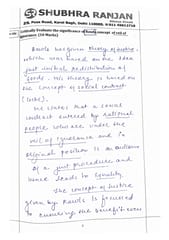 SHUBHRA RANJAN
Critically Evaluate the significance of Rawls concept of veil of
ignorance (20 Marks)
Rawls has given theory of justice
which was based on the idea
just unequal redistribution of
goods. His theory is based on
the concept of social contract
(Locke).
He states that a social
contract entered by rational
people who are under the
veil of ignorance and in
original position is an outcome
of a just procedure and
hence leads to equality.
The concept of justice
given by Rawls is focussed